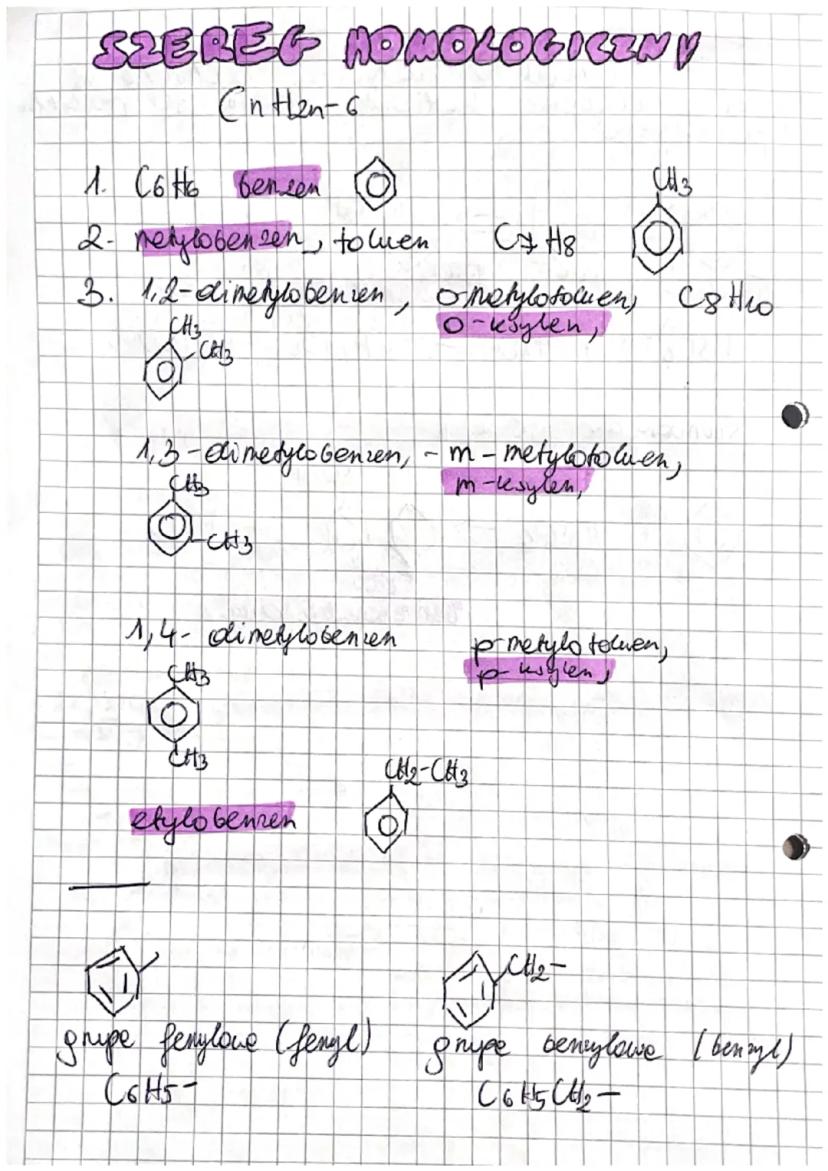 SZEREG HOMOLOGICZNY
CnH2n-6
1. C6H6 benzen
CH3
2. metylobenzen, toluen C7H8
3. 1,2-dimetylobenzen, o-metylotoluen, C8H10
o-ksylen,
CH3
CH3
1,3-dimetylobenzen, - m-metylotoluen,
m-ksylen,
CH3
CH3
1,4-dimetylobenzen p-metylotoluen,
p-ksylen,
CH3
CH3
CH2-CH3
etylobenzen
CH2-
grupa fenylowa (fenyl) grupa benzylowa (benzyl)
C6H5- C6H5CH2-